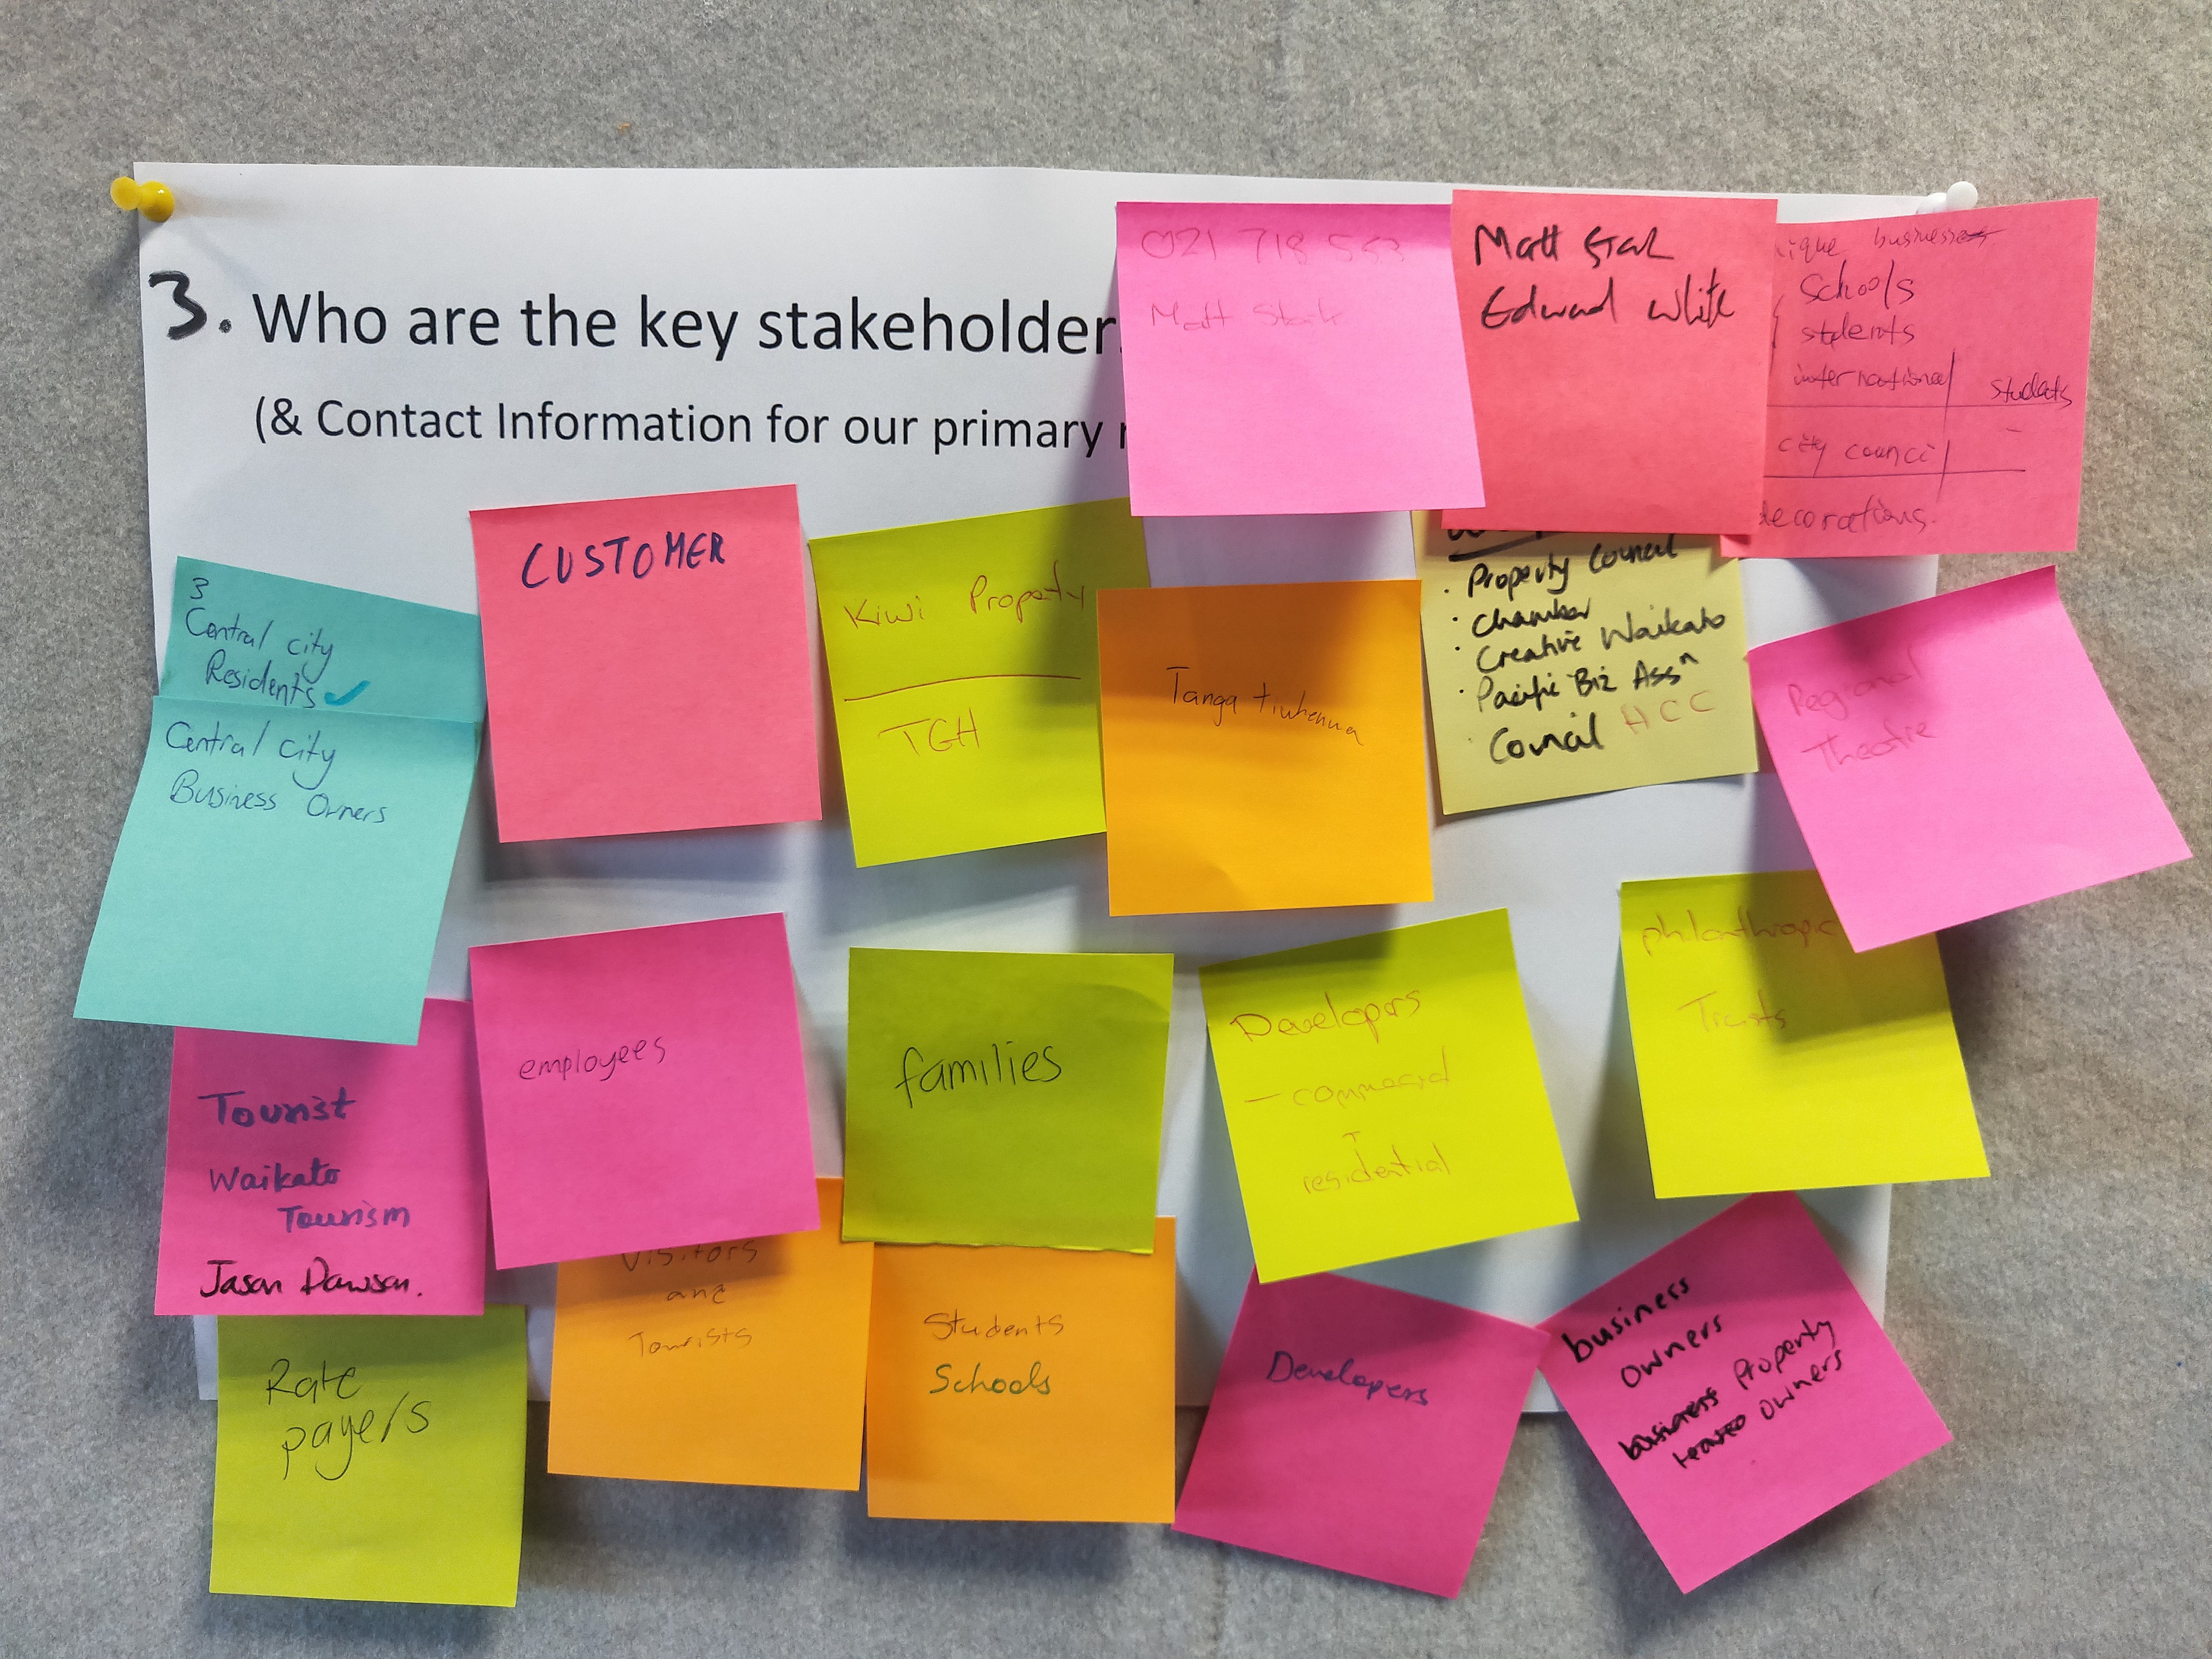 3. Who are the key stakeholder
(& Contact Information for our primary
021 718 563
Matt Stark
Matt Stark
Edward White
ique business
Schools
students
international students
city council
decorations.
3
Central city
Residents ✓
Central city
Business Owners
CUSTOMER
Kiwi Property
TGH
Tanga tiwhenua
· Property Council
· Chamber
· Creative Waikato
· Pacific Biz Assn
· Council HCC
Regional
Theatre
Tourist
Waikato
Tourism
Jason Dawson.
employees
families
Developers
- commercial
+
residential
philanthropic
Trusts
Rate
payers
Visitors
and
Tourists
Students
Schools
Developers
business
owners
business Property
owners